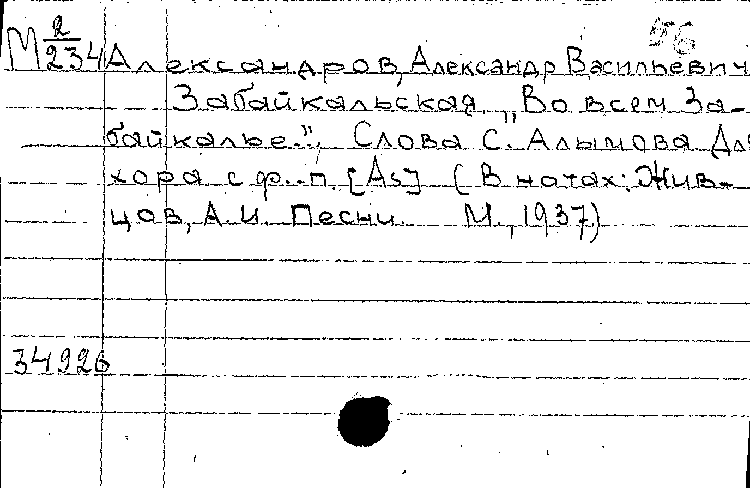 56
М 2/234 Александров, Александр Васильевич
Забайкальская „Во всем За-
байкалье.." Слова С. Алымова Для
хора с ф.-п. [As] (В нотах: Жив-
цов, А.И. Песни. М., 1937)
34926